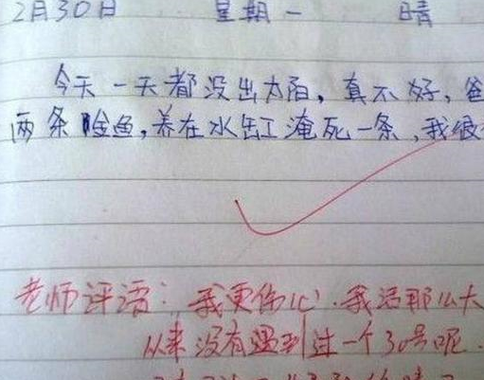 2月30日 星期一 晴
今天一天都没出太阳，真不好，爸
两条金鱼，养在水缸淹死一条，我很
老师评语：我更伤心，我活那么大
从来没有遇到过一个30号呢．